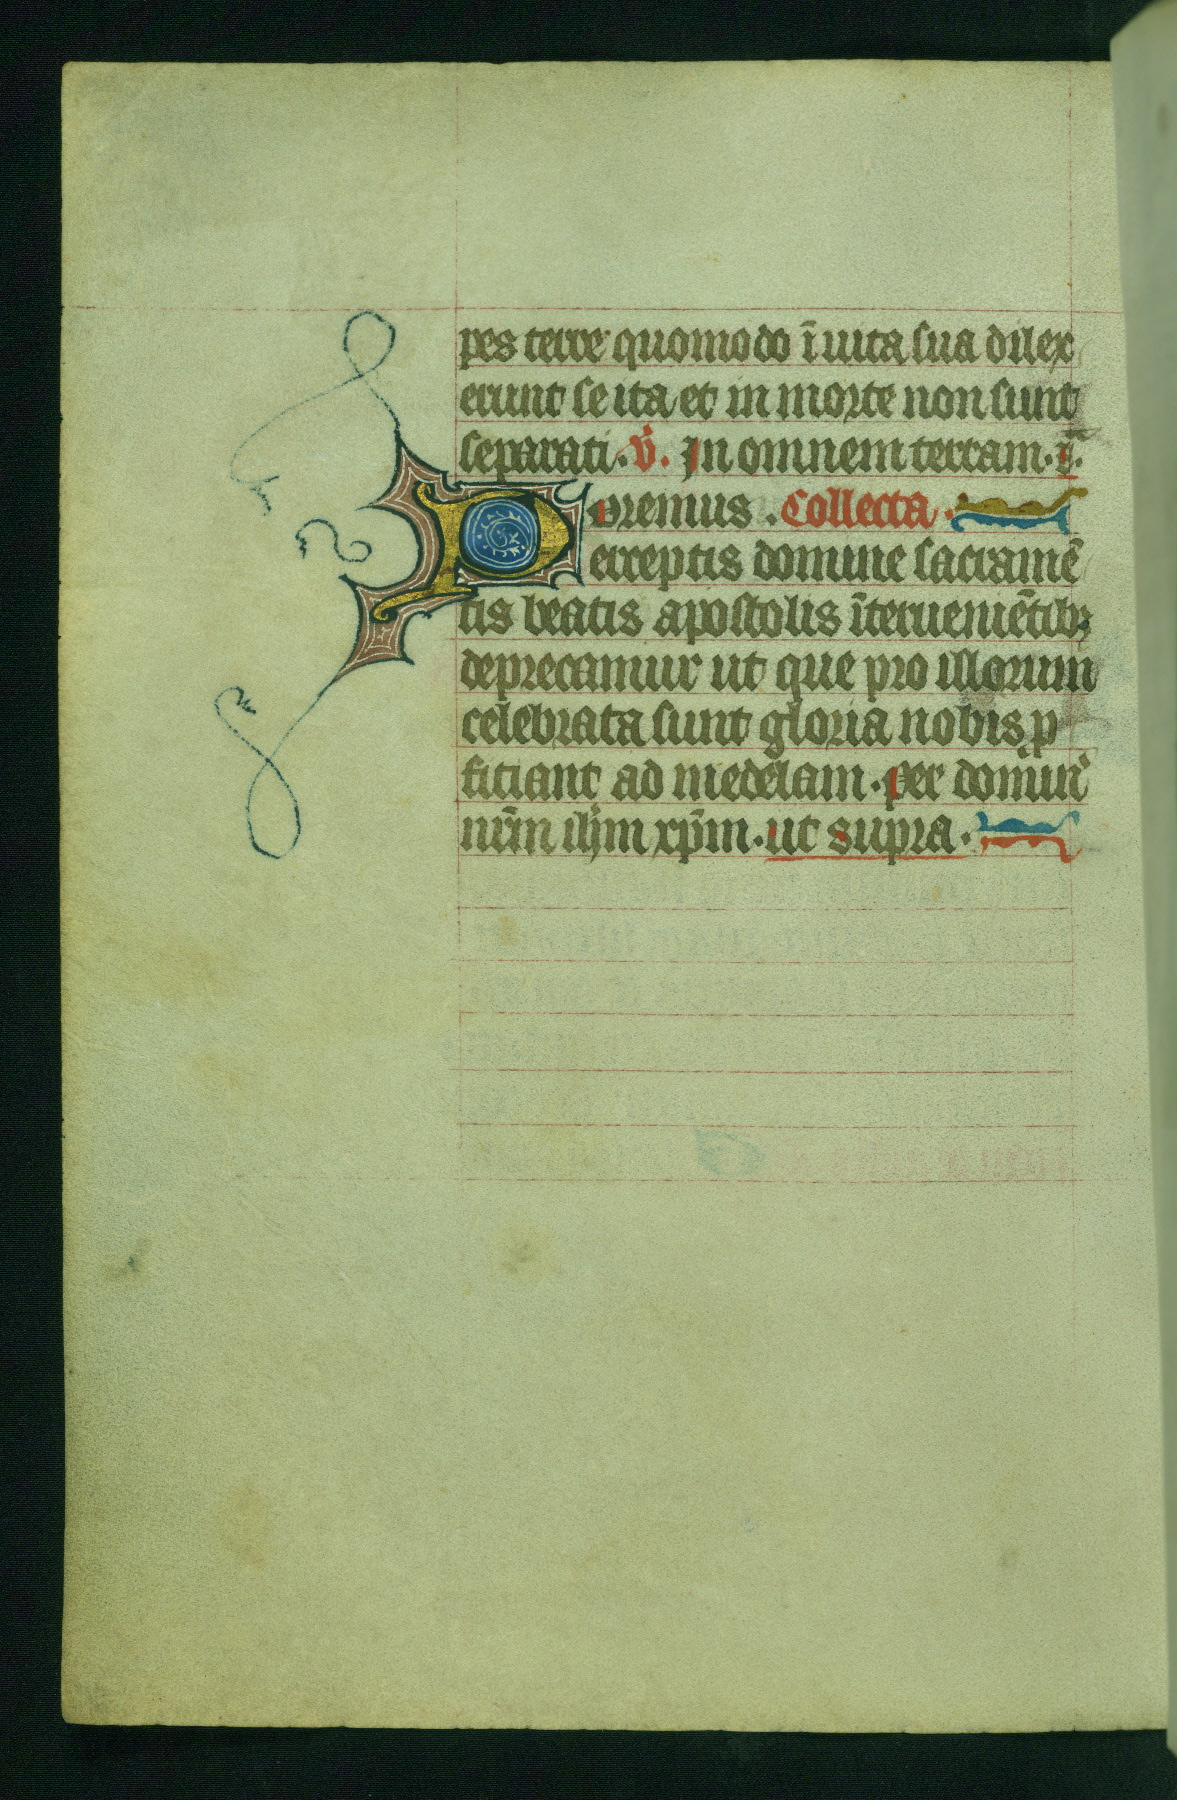 pes terre quomodo ī uita sua dilex
erunt se ita et in morte non sunt
separati. v̄. In omnem terram. r̄.
oremus. Collecta.
Perceptis domine sacramē
tis beatis apostolis īteruenіētibꝫ
deprecamur ut que pro illorum
celebrata sunt gloria nobis ꝓ
ficiant ad medelam. per domin̄
nr̄m ih̄m xp̄m. ut supra.